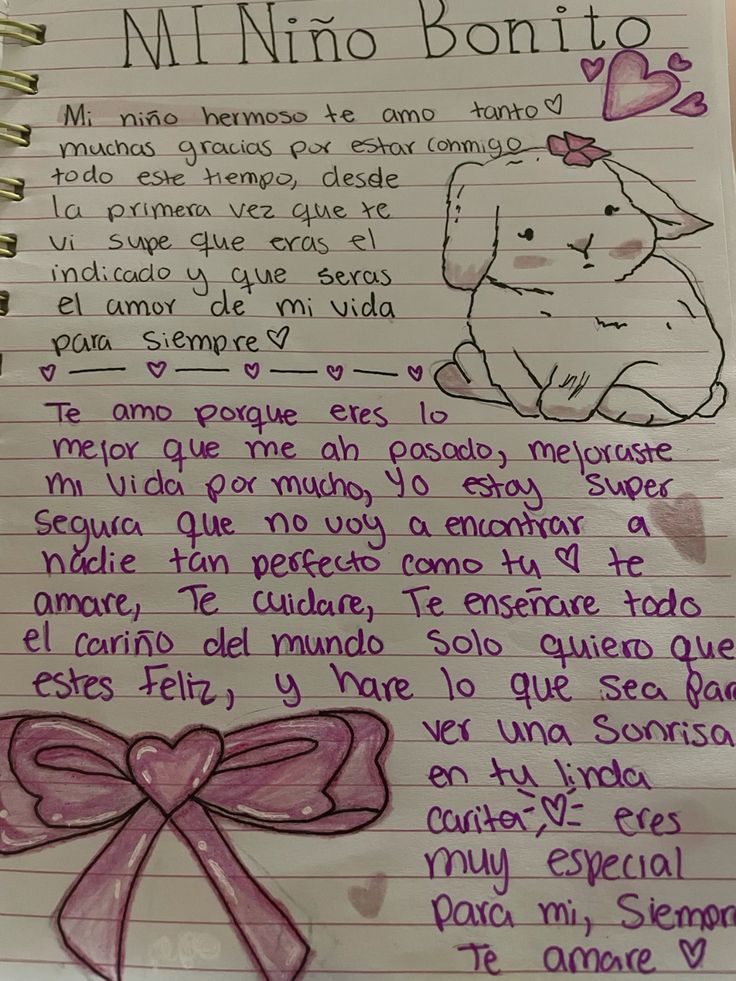 MI Niño Bonito
Mi niño hermoso te amo tanto♡
muchas gracias por estar conmigo
todo este tiempo, desde
la primera vez que te
vi supe que eras el
indicado y que seras
el amor de mi vida
para siempre♡
Te amo porque eres lo
mejor que me ah pasado, mejoraste
mi vida por mucho, yo estoy super
segura que no voy a encontrar a
nadie tan perfecto como tu ♡ te
amare, Te cuidare, Te enseñare todo
el cariño del mundo solo quiero que
estes feliz, y hare lo que sea par
ver una sonrisa
en tu linda
carita ♡ eres
muy especial
para mi, siempr
Te amare ♡